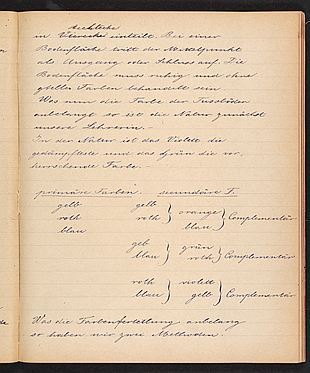 Sechsecke
in Vierecke einteilt. Bei einer
Bodenfläche tritt der Mittelpunkt
als Ausgang oder Schluss auf. Die
Bodenfläche muss ruhig und ohne
grelle Farben behandelt sein
Was nun die Farbe der Fussböden
anbelangt so ist die Natur zunächst
unsere Lehrerin.
In der Natur ist das Violett die
gedämpfteste und das Grün die vor-
herrschende Farbe.
primäre Farben. secundäre F.
gelb gelb
roth roth } orange
blau blau } Complementär
gelb } grün
blau roth } Complementär
roth } violett
blau gelb } Complementär
Was die Farbenverteilung anbelang
so haben wir zwei Methoden.